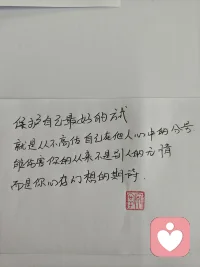 保护自己最好的方式
就是从不高估自己在他人心中的分量
能伤害你的从来不是别人的无情
而是你心存幻想的期待